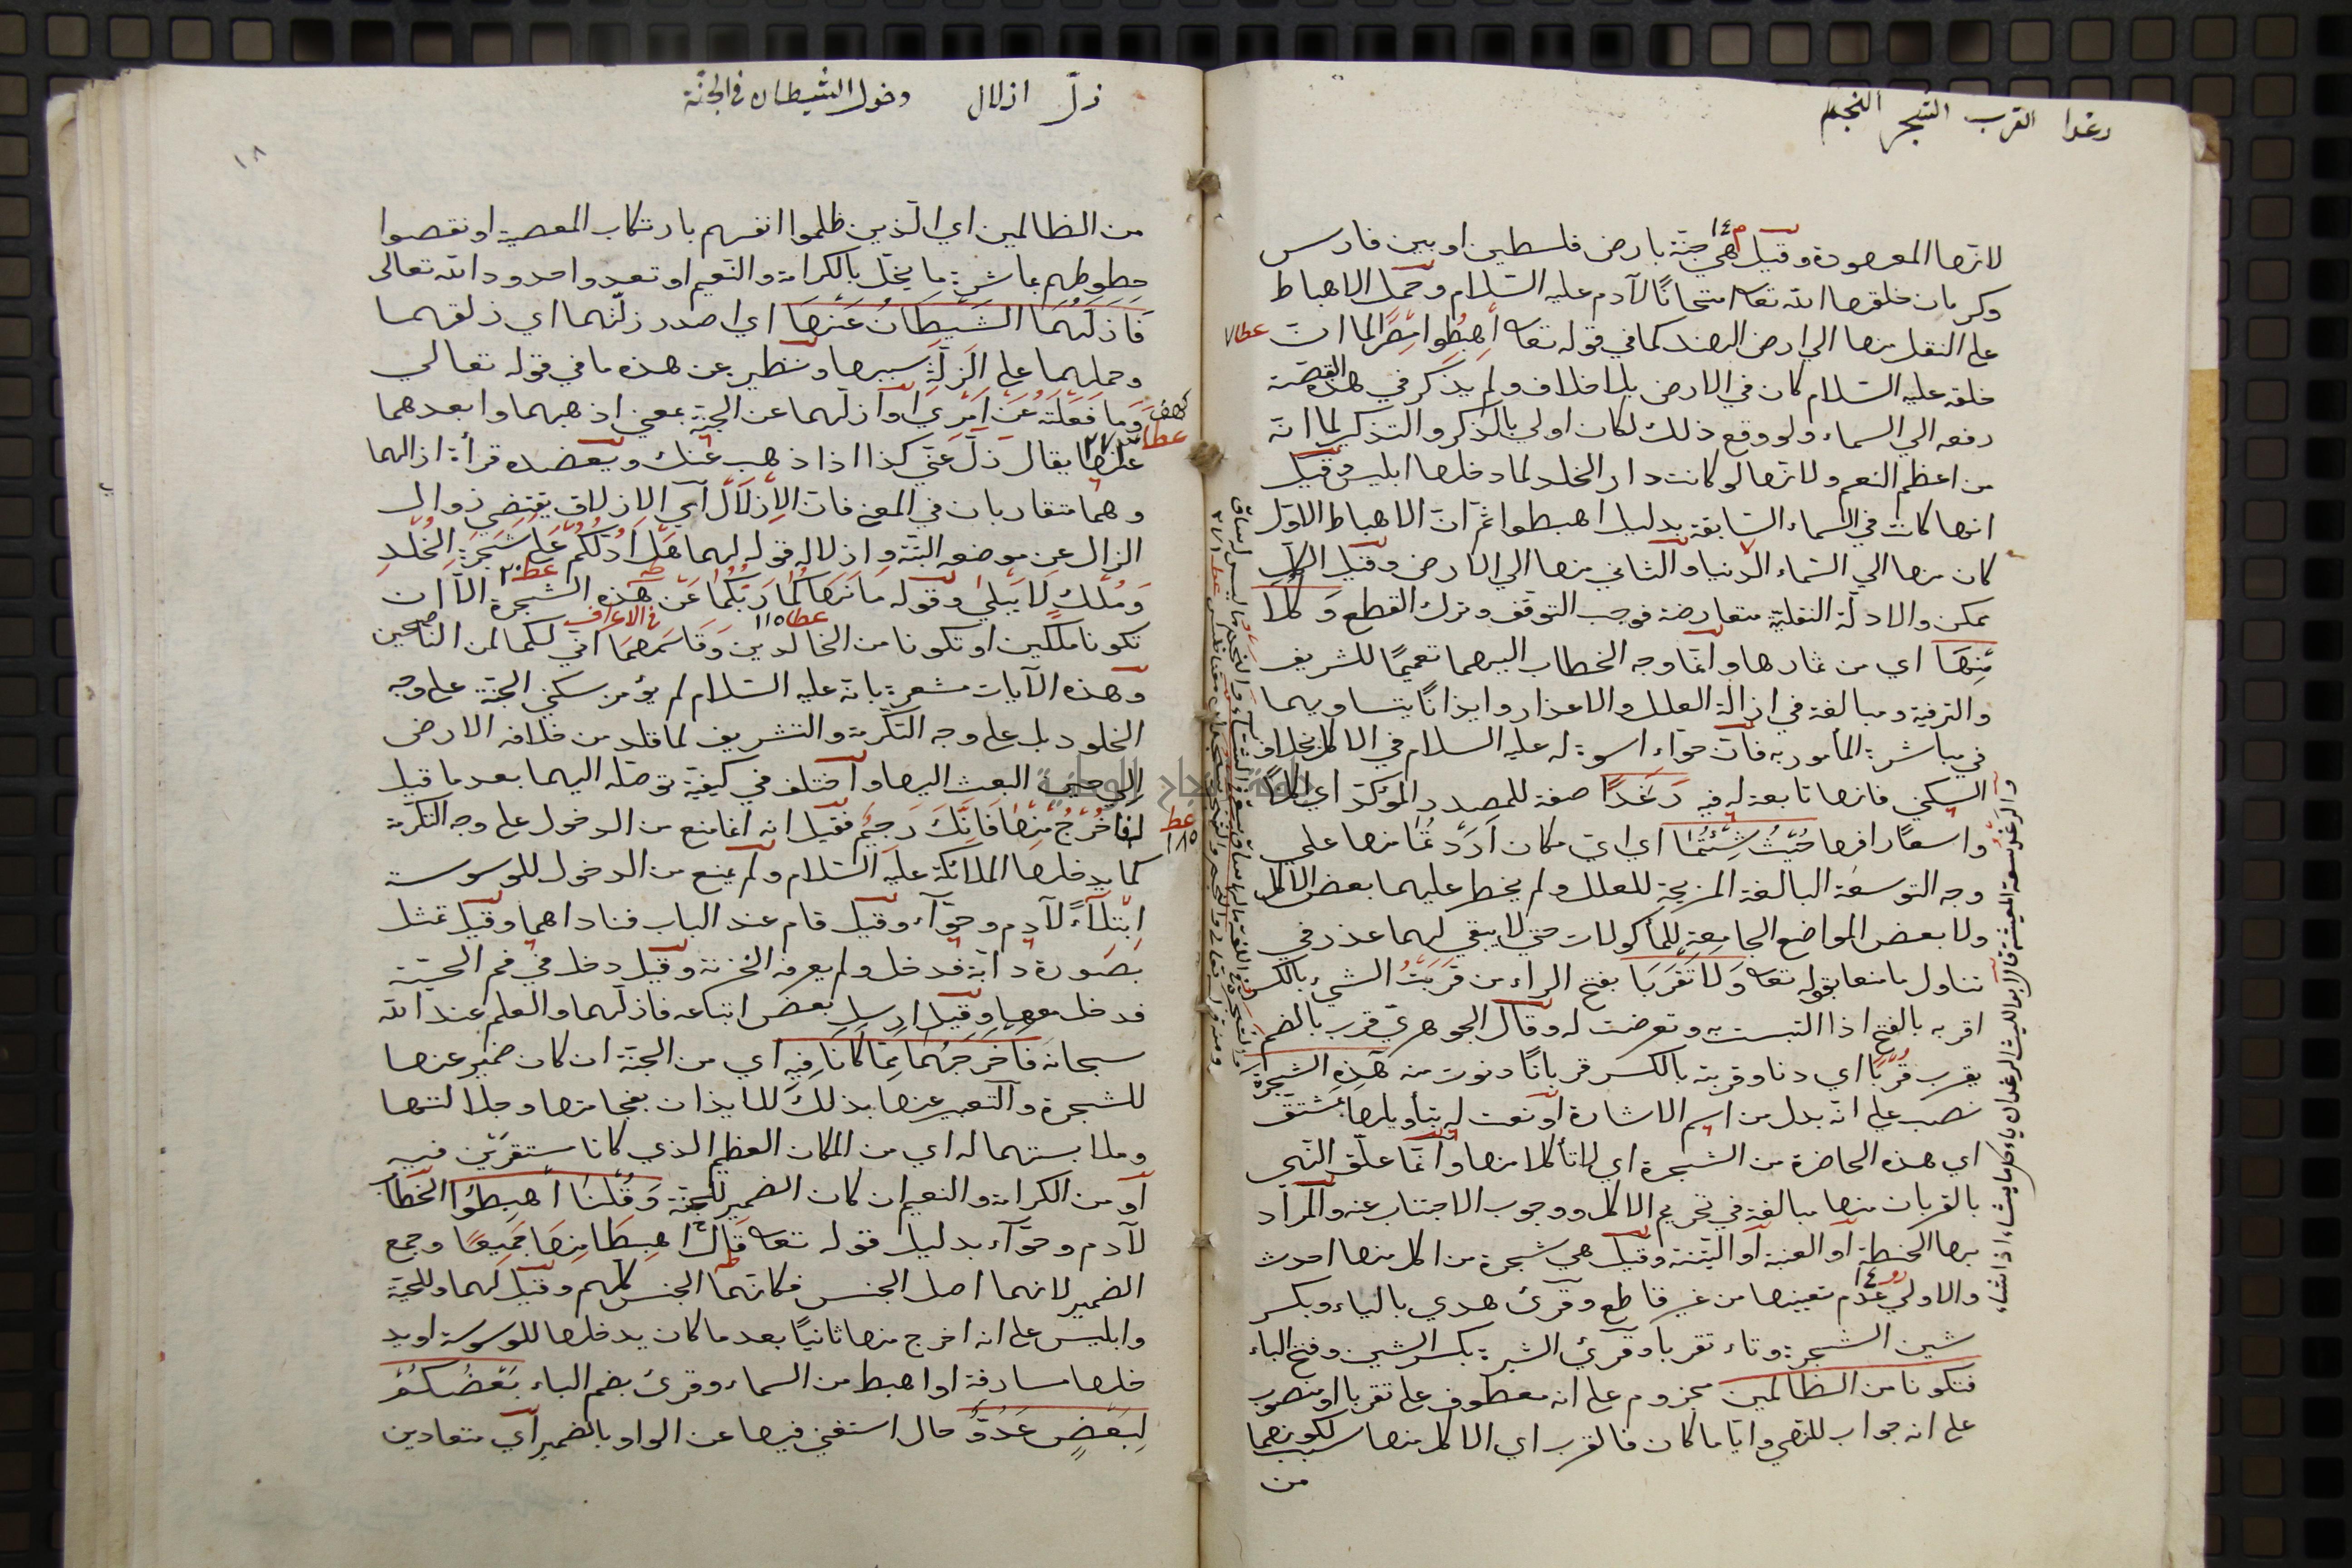 رغدا القرب الشجر النجم
لانها المعهودة وقيل هي جنة بارض فلسطين او بين فارس
وكرمان خلقها الله تعا امتحانًا لآدم عليه السّلام وحمل الاهباط
على النقل منها الي ارض الهند كما في قوله تعا اهبطوا مصرًا لما ان
خلقه عليه السّلام كان في الارض بلا خلاف ولم يذكر في هذه القصّة
رفعه الي السماء ولو وقع ذلك لكان اولي بالذكر والتذكير لما انّه
من اعظم النعم ولانها لو كانت دار الخلد لما دخلها ابليس وقيل
انها كانت في السّماء السّابقة بدليل اهبطوا ثم انّ الاهباط الاوّل
كان منها الي السّماء الدّنيا والثاني منها الي الارض وقيل الكل
ممكن والادلّة النقليّة متعارضة فوجب التوقف وترك القطع وَكُلَا
مِنْهَا اي من ثمارها وانّما وجه الخطاب اليهما تعميمًا للشريف
والترفية ومبالغة في ازالة العلل والاعذار وايذانًا بتساويهما
في مباشرة المأمور به فانّ حوّاء اسوة له عليه السلام في الاكل بخلاف
السكني فانها تابعة له فيه رَغَدًا صفة للمصدر المؤكّد اي اكلًا
واسعًا رافها حَيْثُ شِئْتُمَا اي ايّ مكان اردتما منها علي
وجه التوسعة البالغة المزيحة للعلل ولم يحظر عليهما بعض الاكل
ولا بعض المواضع الجامعة للمأكولات حتي لا يبقي لهما عذر في
تناول ما منعا بقوله تعا وَلَا تَقْرَبَا بفتح الراء من قَرِبْتُ الشيء بالكسر
اقربه بالفتح اذا التبست به وتعرضت له وقال الجوهري قرب بالضم
يقرب قُرْبًا اي دنا وقربته بالكسر قربانًا دنوت منه هَذِهِ الشجرة
نصب علي انه بدل من اسم الاشارة او نعت له بتأويلها بمشتق
اي هذه الحاضرة من الشجرة اي لا تأكلا منها وانّما علّق النهي
بالقربان منها مبالغة في تحريم الاكل ووجوب الاجتناب عنه والمراد
بها الحنطة او العنبة او التينة وقيل هي شجرة من اكل منها احدث
والاولي عدم تعيينها من غير قاطع وقرئ هذي بالياء وبكسر
شين الشجرة وتاء تقربا وقرئ الشيرة بكسر الشين وفتح الياء
فتكونا من الظالمين مجزوم على انه معطوف على تقربا او منصوب
على انه جواب للنهي وايّا ما كان فالقرب اي الاكل منها سبب لكونهما
من
زلّ ازلال دخول الشيطان في الجنّة
١٨
من الظالمين اي الّذين ظلموا انفسهم بارتكاب المعصية او نقصوا
حظوظهم بمباشرة ما يخلّ بالكرامة والنّعيم او تعدوا حدود الله تعالى
فَاَزَلَّهُمَا الشَيْطَانُ عَنْهَا اي اصدر زلّتهما اي زلقهما
وحملهما على الزلّة بسببها ونظير عن هذه ما في قوله تعالي
وَمَا فَعَلْتُهُ عَنْ اَمْرِيْ او ازلّهما عن الجنّة بمعني اذهبهما وابعدهما
عنها يقال زلّ عنّي كذا اذا ذهب عنك ويعضده قرأة ازالهما
وهما متقاربان في المعني فانّ الازلال اي الازلاق يقتضي زوال
الزال عن موضعه البتّة وازلاله قوله لهما هَلْ اَدُلُّكُمْ عَلَى شَجَرَةِ الخُلْدِ
وَمُلْكٍ لَا يَبْلَى وقوله مَا نَهَاكُمَا رَبُّكُمَا عَنْ هذه الشجرة الّا ان
تكونا ملكين او تكونا من الخالدين وَقَاسَمَهُمَا اني لكما لمن الناصحين
وهذه الآيات مشعرة بانّه عليه السّلام لم يؤمر بسكني الجنّة على وجه
الخلود بل على وجه التكرمة والتشريف لما قلد من خلافه الارض
الي حين البعث اليها واختلف في كيفيّة توصّله اليهما بعد ما قيل
له فَاخْرُجْ مِنْهَا فَاِنَّكَ رَجِيْمٌ فقيل انه انما منع من الدخول على وجه التكرمة
كما يدخلها الملائكة عليه السّلام ولم يمنع من الدخول للوسوسة
ابتلآءً لآدم وحوّآء وقيل قام عند الباب فناداهما وقيل تمثل
بصورة دابّة فدخل ولم يعرفه الخزنة وقيل دخل في فم الحيّة
فدخل معها وقيل ارسل بعض اتباعه فازلّهما والعلم عند الله
سبحانه فَاَخْرَجَهُمَا مِمَّا كَانَا فِيهِ اي من الجنّة ان كان ضمير عنها
للشجرة والتعبير عنها بذلك للايذان بفخامتها وجلالتها
وملابستهما له اي من المكان العظيم الذي كانا مستقرّين فيه
او من الكرامة والنعيم ان كان الضمير للجنّة وَقُلْنَا اهْبِطُوْا الخطاب
لآدم وحوّآء بدليل قوله تعا قَالَ اهْبِطَا مِنْهَا جَمِيعًا وجمع
الضمير لانهما اصل الجنس فكانّهما الجنس كلّهم وقيل لهما وللحيّة
وابليس على انه اخرج منها ثانيًا بعد ما كان يدخلها للوسوسة او يد
خلها مسارقة او اهبط من السماء وقرئ بضم الباء بَعْضُكُمْ
لِبَعْضٍ عَدُوٌّ حال استغني فيها عن الواو بالضمير اي متعادين